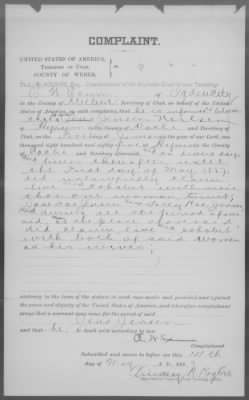 COMPLAINT.
UNITED STATES OF AMERICA,
TERRITORY OF UTAH,
COUNTY OF WEBER,
To L. R. ROGERS, Esq., Commissioner of the Supreme Court of said Territory.
of Ogden City
in the County of Weber Territory of Utah, on behalf of the United
States of America, on oath complains, that he is informed
that Jensen
of Hyrum in the County of Cache and Territory of
Utah, on the day of in the year of our Lord, one
thousand eight hundred and eighty five at Hyrum in the
County of Cache and Territory aforesaid, and on divers days
and times thereafter until
the First day of May 1887,
did unlawfully claim
live and cohabit with more
than one woman, towit;
Jane Doe Jensen and Sally Roe Jensen
and during all the period aforesaid
and at the place aforesaid
did claim, live & cohabit
with both of said women
as his wives;
contrary to the form of the statute in such case made and provided and against
the peace and dignity of the United States aforesaid, and therefore complainant
prays that a warrant may issue for the arrest of said
Jens Jensen
and that he be dealt with according to law.
Complainant.
Subscribed and sworn to before me this 11th
day of May A. D., 1887
Lindsay R. Rogers